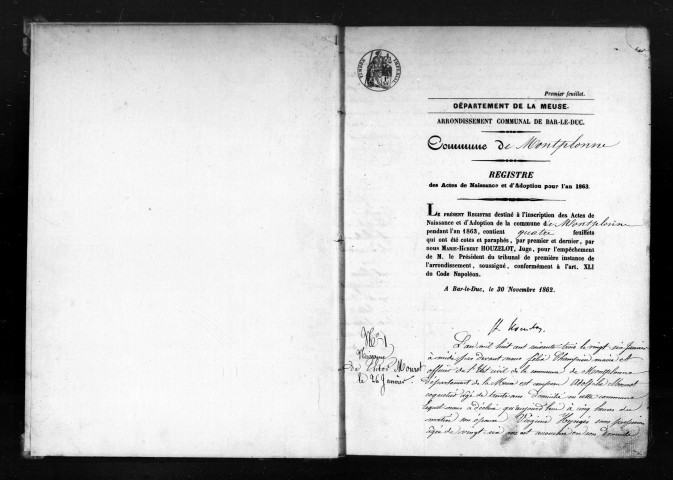 TIMBRE IMPERIAL
Premier feuillet.
DÉPARTEMENT DE LA MEUSE.
ARRONDISSEMENT COMMUNAL DE BAR-LE-DUC.
Commune de Montplonne
REGISTRE
des Actes de Naissance et d'Adoption pour l'an 1863.
LE PRÉSENT REGISTRE destiné à l'inscription des Actes de
Naissance et d'Adoption de la commune de Montplonne
pendant l'an 1863, contient quatre feuillets
qui ont été cotés et paraphés, par premier et dernier, par
nous MARIE-HUBERT HOUZELOT, Juge, pour l'empêchement
de M. le Président du tribunal de première instance de
l'arrondissement, soussigné, conformément à l'art. XLI
du Code Napoléon.
A Bar-le-Duc, le 30 Novembre 1862.
N° 1
Naissance
de Mourot
le 26 Janvier.
L'an mil huit cent soixante trois le vingt six Janvier
à midi par devant nous félix Champion maire et
officier de l'état civil de la commune de Montplonne
département de la Meuse est comparu Adolphe Mourot
âgé de trente ans domicilié en cette commune
lequel nous a déclaré qu'aujourd'hui à cinq heures du
matin son épouse Virginie sans profession
âgée de vingt six ans est accouchée en son domicile